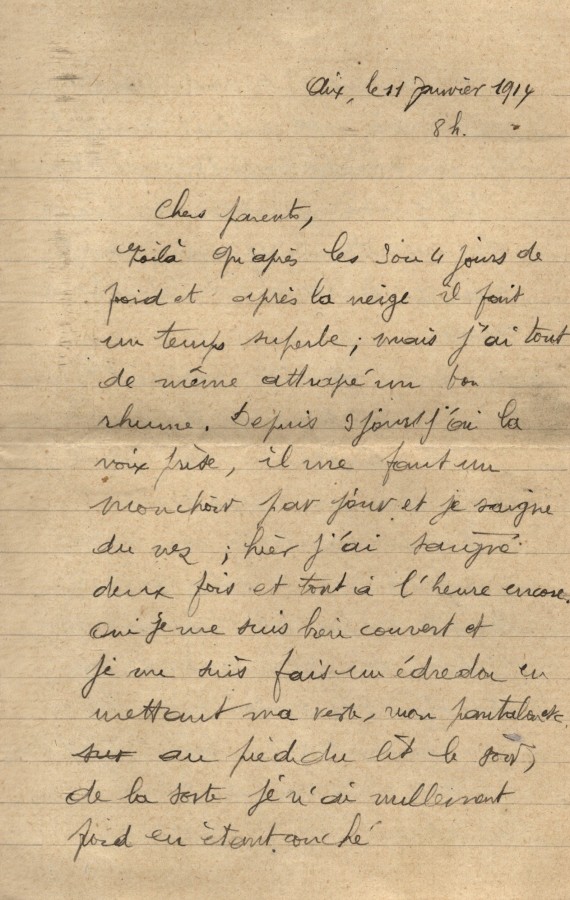 Aix, le 11 Janvier 1914
8 h.
Chers parents,
Voilà qu'après les 3 ou 4 jours de
froid et après la neige il fait
un temps superbe ; mais j'ai tout
de même attrapé un bon
rhume. Depuis 3 jours j'ai la
voix prise, il me faut un
mouchoir par jour et je saigne
du nez ; hier j'ai saigné
deux fois et tout à l'heure encore.
Oui je me suis bien couvert et
je me suis fais un édredon en
mettant ma veste, mon pantalon etc.
sur au pied du lit le soir,
de la sorte je n'ai nullement
froid en étant couché